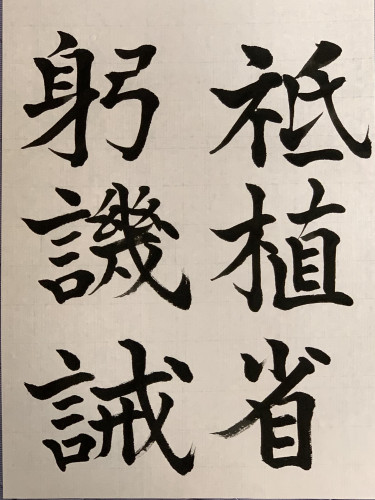 祗植省
躬譏誡